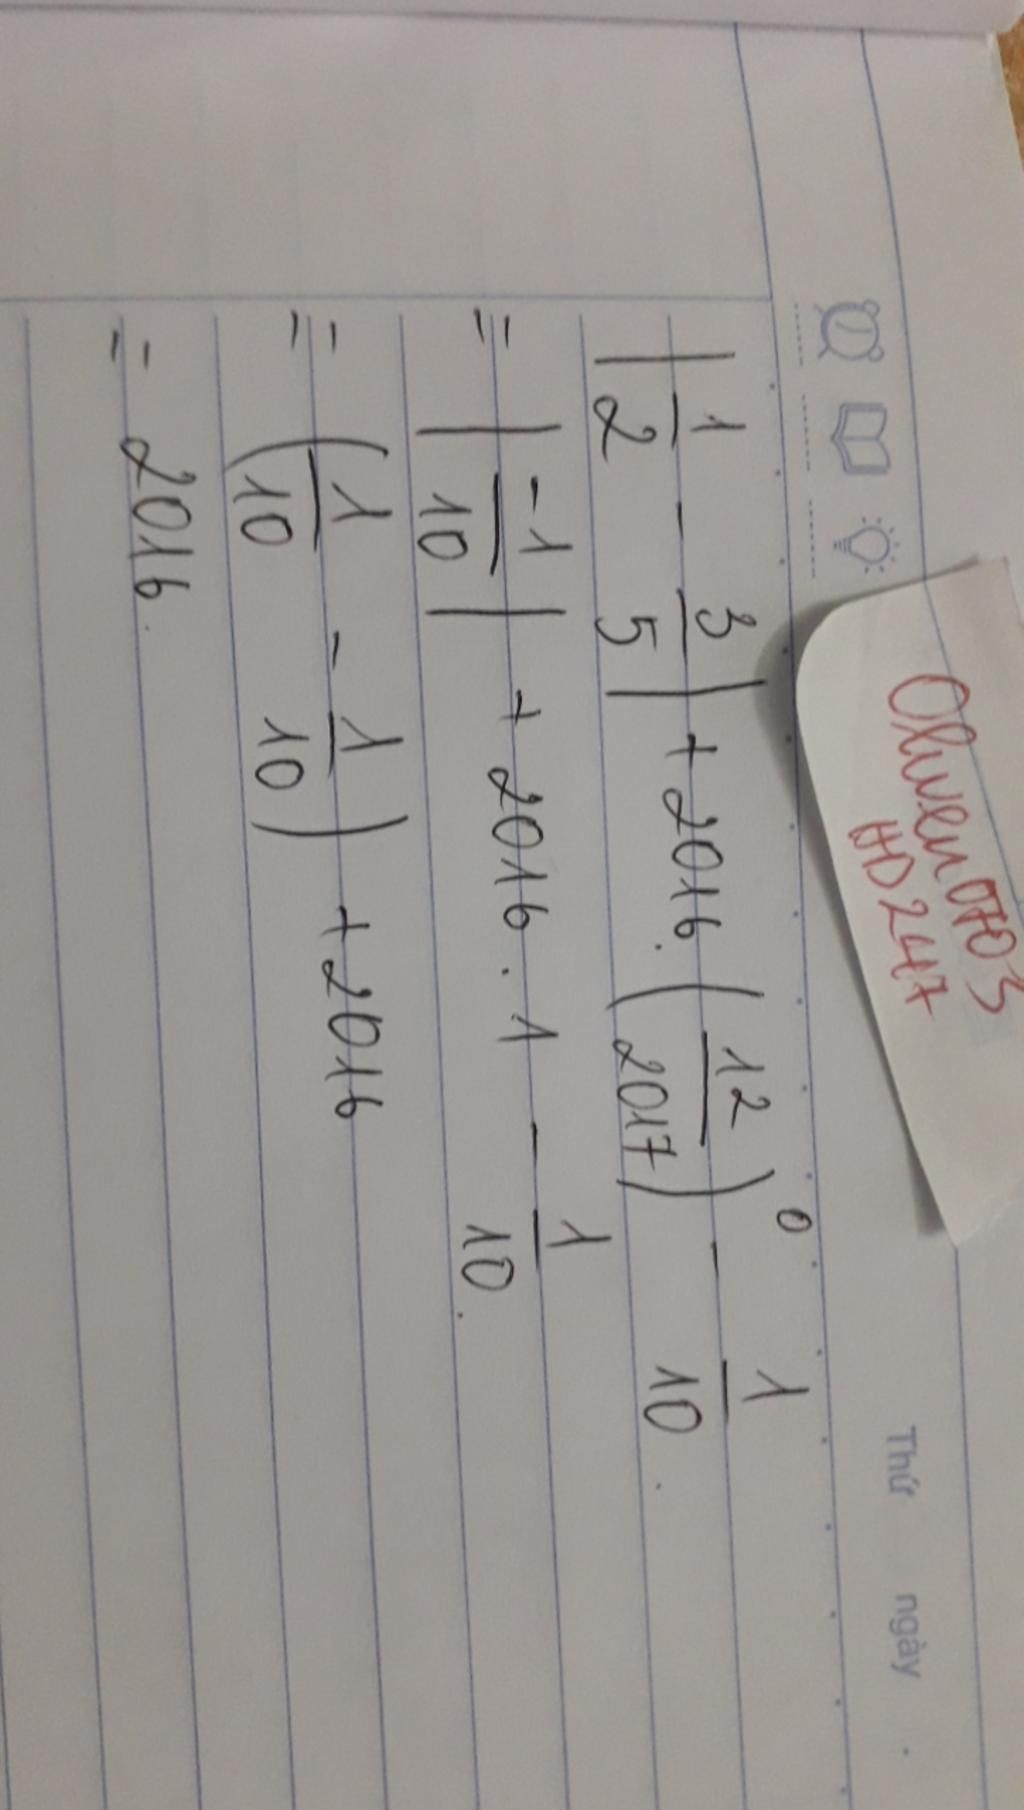 Thứ ngày .
Oliwen0703
HD247
| 1/2 - 3/5 | + 2016. (12/2017)⁰ - 1/10 .
= | -1/10 | + 2016 . 1 - 1/10 .
= (1/10 - 1/10) + 2016
= 2016.